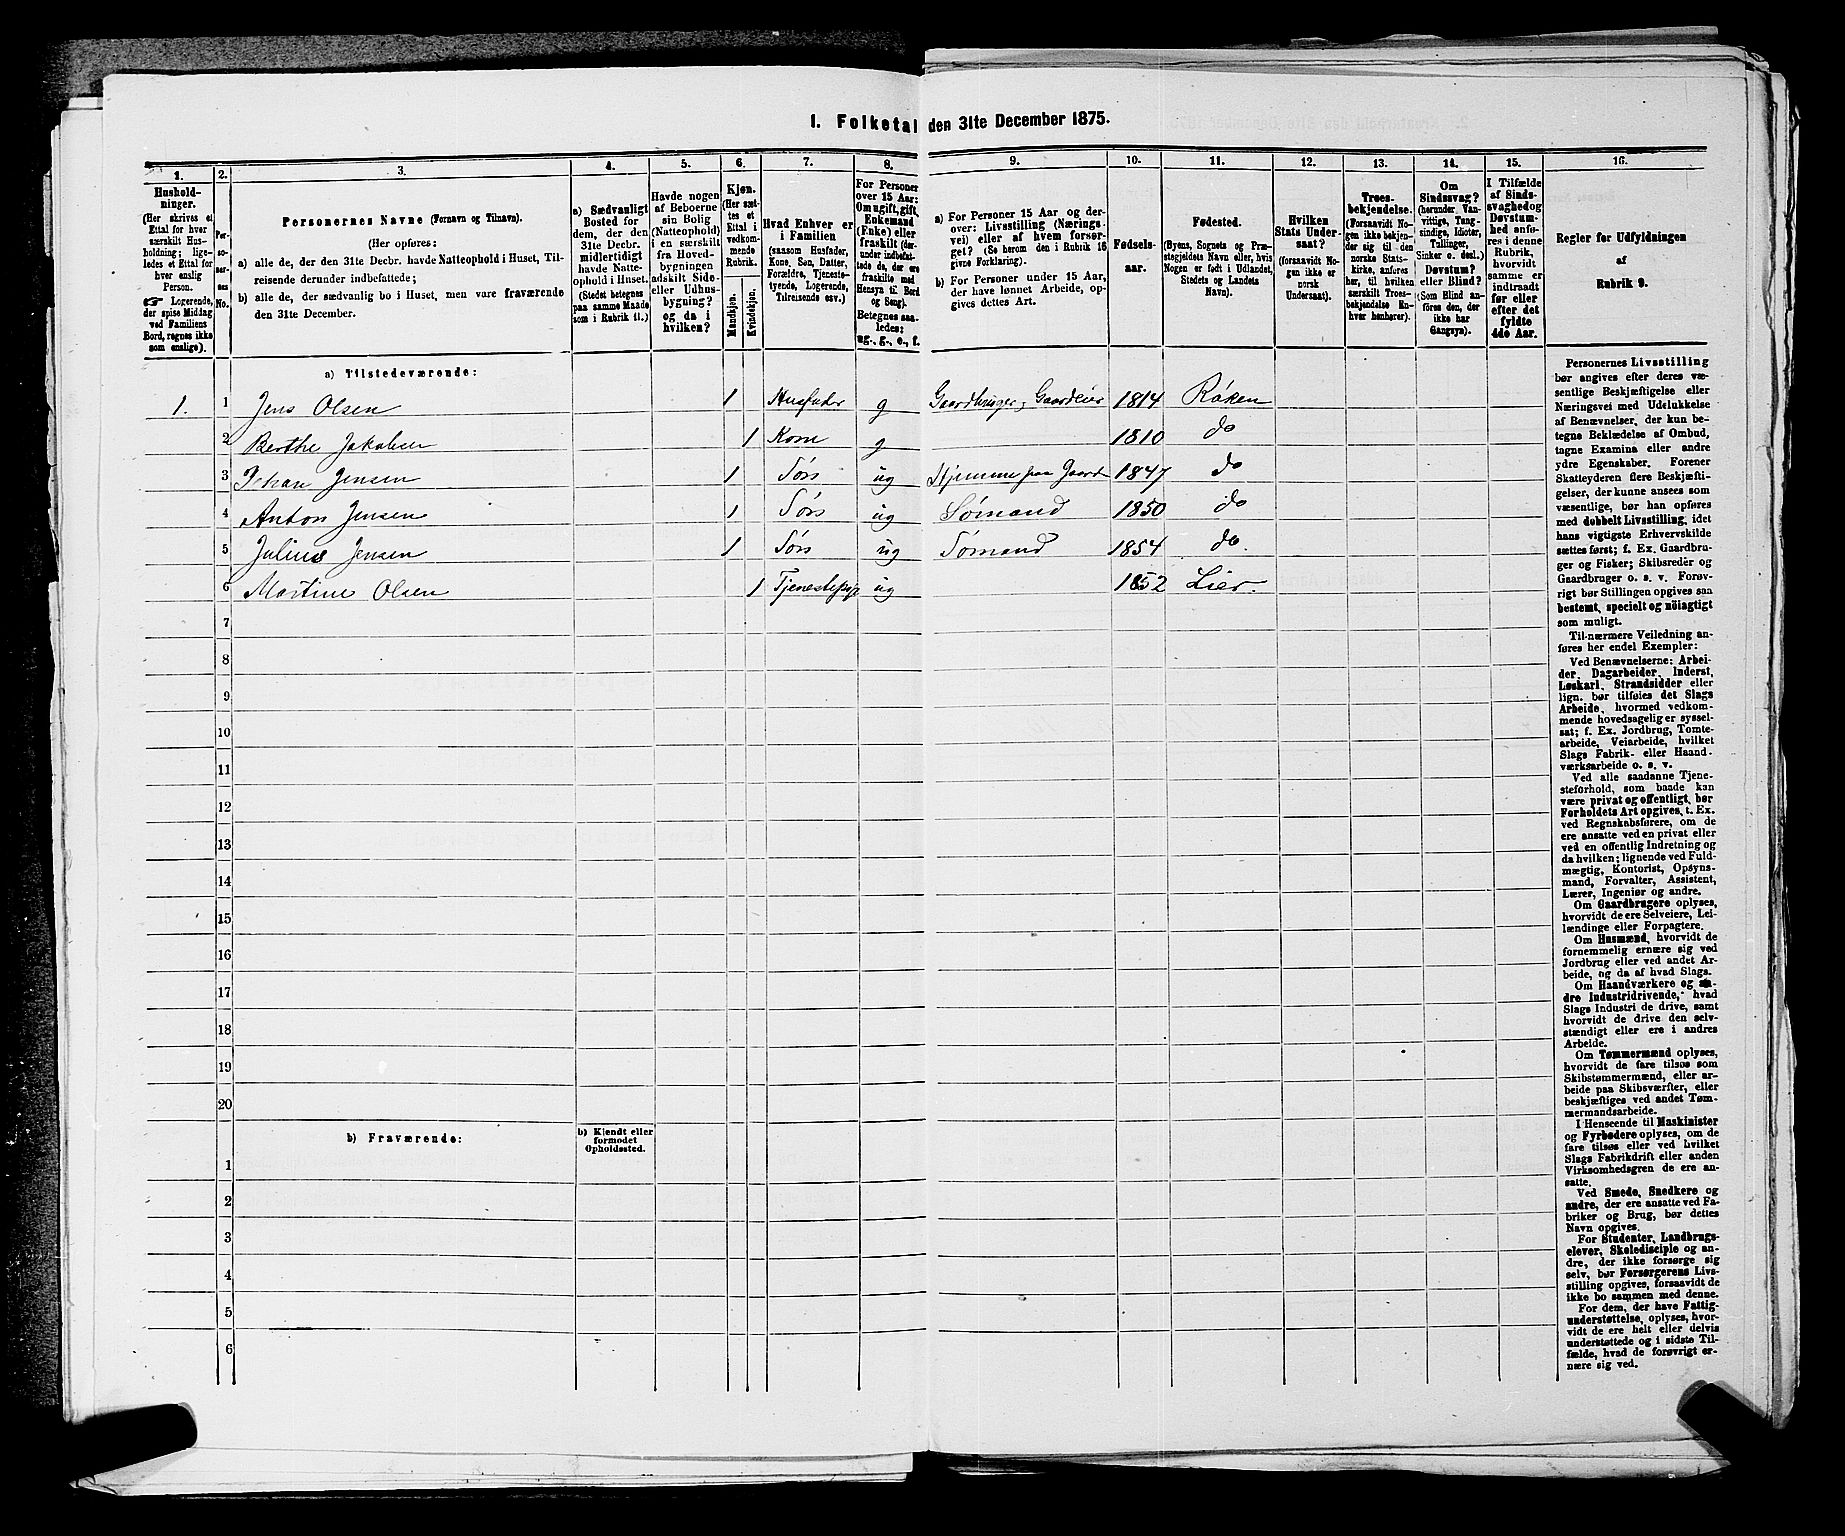 1. Folketal den 31te December 1875.
1. 2. 3. 4. 5. 6. 7. 8. 9. 10. 11. 12. 13. 14. 15. 16.
Hushold-
ninger.
(Her skrives et
Ettal for hver
særskilt Hus-
holdning; lige-
ledes et Ettal for
hver enslig
Person.
☞ Logerende,
der spise Middag
ved Familiens
Bord, regnes ikke
som enslige).
Per-
so-
ner-
nes
No.
Personernes Navne (Fornavn og Tilnavn).
(Her opføres:
a) alle de, der den 31te Decbr. havde Natteophold i Huset, Til-
reisende derunder indbefattede;
b) alle de, der sædvanlig bo i Huset, men vare fraværende
den 31te December.
a) Sædvanligt
Bosted for
dem, der den
31te Decbr.
midlertidigt
havde Natte-
ophold i Huset.
(Stedet betegnes
paa samme Maade
som i Rubrik 11.)
Havde nogen
af Beboerne
sin Bolig
(Natteophold)
i en særskilt
fra Hoved-
bygningen
adskilt Side-
eller Udhus-
bygning?
og da i
hvilken?
Kjøn.
(Her sæt-
tes et
Ettal i
vedkom-
mende
Rubrik.
Mandkjøn.
Kvindekjøn.
Hvad Enhver er
i Familien
(saasom Husfader,
Kone, Søn, Datter,
Forældre, Tjeneste-
tyende, Logerende,
Tilreisende osv.)
For Personer
over 15 Aar:
Om ugift, gift,
Enkemand
(Enke) eller
fraskilt (der-
under indbefat-
tede de, der ere
fraskilte med
Hensyn til Bord
og Seng).
Betegnes saa-
ledes:
ug., g., e., f.
a) For Personer 15 Aar og der-
over: Livsstilling (Nærings-
vei) eller af hvem forsør-
get? (Se herom den i Rubrik 16
givne Forklaring).
b) For Personer under 15 Aar,
der have lønnet Arbeide, op-
gives dettes Art.
Fødsels-
aar.
Fødested.
(Byens, Sognets og Præ-
stegjeldets Navn eller, hvis
Nogen er født i Udlandet,
Stedets og Landets
Navn).
Hvilken
Stats Under-
saat?
(forsaavidt No-
gen ikke er
norsk
Undersaat).
Troes-
bekjendelse.
(Forsaavidt No-
gen ikke bekjen-
der sig til den
norske Stats-
kirke, anføres
her, til hvilken
særskilt Troes-
bekjendelse En-
hver henhører).
Om
Sindssvag?
(herunder, Van-
vittige, Tung-
sindige, Idioter,
Tullinger,
Sinker o. desl.)
Døvstum?
eller Blind?
(Som Blind an-
føres den, der
ikke har
Gangsyn).
I Tilfælde
af Sinds-
svaghed og
Døvstum-
hed anfø-
res i denne
Rubrik,
hvorvidt
samme er
indtraadt
før eller
efter det
fyldte
4de Aar.
Regler for Udfyldningen
af
Rubrik 9.
a) Tilstedeværende:
1. 1 Jens Olsen 1 Husfader g Gaardbruger, Gaardeier 1814 Røken
2 Berthe Jakobsen 1 Kone g 1810 do
3 Johan Jensen 1 Søn ug Hjemme paa Gaard 1847 do
4 Anton Jensen 1 Søn ug Sømand 1850 do
5 Julius Jensen 1 Søn ug Sømand 1854 do.
6 Martine Olsen 1 ug 1852 Lier.
7
8
9
10
11
12
13
14
15
16
17
18
19
20
b) Fraværende:
b) Kjendt eller
formodet
Opholdssted.
1
2
3
4
5
6
Personernes Livsstilling
bør angives efter deres væ-
sentlige Beskjæftigelse eller
Næringsvei med Udelukkelse
af Benævnelser, der kun be-
tegne Beklædelse af Ombud,
tagne Examina eller andre
ydre Egenskaber. Forener
Skatteyderen flere Beskjæfti-
gelser, der kunne ansees som
væsentlige, bør han opføres
med dobbelt Livsstilling, idet
hans vigtigste Erhvervskilde
sættes først; f. Ex. Gaardbru-
ger og Fisker; Skibsreder og
Gaardbruger o. s. v. Forøv-
rigt bør Stillingen opgives saa
bestemt, specielt og nöiagtigt
som muligt.
Til nærmere Veiledning an-
føres her endel Exempler:
Ved Benævnelserne: Arbei-
der, Dagarbeider, Inderst,
Løskarl, Strandsidder eller
lign. bør tilføies det Slags
Arbeide, hvormed vedkom-
mende hovedsagelig er syssel-
sat; f. Ex. Jordbrug, Tomte-
arbeide, Veiarbeide, hvilket
Slags Fabrik- eller Haand-
værksarbeide o. s. v.
Ved alle saadanne Tjene-
steforhold, som baade kan
være privat og offentligt, bør
Forholdets Art opgives, t. Ex.
ved Regnskabsførere, om de
ere ansatte ved en privat eller
ved en offentlig Indretning og
da hvilken; lignende ved Fuld-
mægtig, Kontorist, Opsyns-
mand, Forvalter, Assistent,
Lærer, Ingeniør og andre.
Om Gaardbrugere oplyses,
hvorvidt de ere Selveiere, Lei-
lændinge eller Forpagtere.
Om Husmænd, hvorvidt de
fornemmelig ernære sig ved
Jordbrug eller ved andet Ar-
beide, og da af hvad Slags.
Om Haandværkere og an-
dre Industridrivende, hvad
Slags Industri de drive, samt
hvorvidt de drive den selv-
stændigt eller ere i andres
Arbeide.
Om Tømmermænd oplyses,
hvorvidt de fare tilsøs som
Skibstømmermænd, eller ar-
beide paa Skibsværfter, eller
beskjæftiges ved andet Tøm-
mermandsarbeide.
I Henseende til Maskinister
og Fyrbødere oplyses, om de
fare tilsøs eller ved hvilket
Slags Fabrikdrift eller anden
Virksomhedsgren de ere an-
satte.
Ved Smede, Snedkere og
andre, der ere ansatte ved Fa-
briker og Brug, bør dettes
Navn opgives.
For Studenter, Landbrugs-
elever, Skoledisciple og an-
dre, der ikke forsørge sig
selv, bør Forsørgerens Livs-
stilling opgives, forsaavidt de
ikke bo sammen med denne.
For dem, der have Fattig-
understøttelse, oplyses, hvor-
vidt de ere helt eller delvis
understøttede og i sidste Til-
fælde, hvad de forøvrigt er-
nære sig ved.